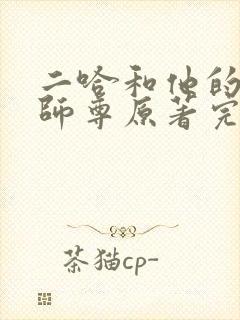 二哈和他的
師尊原著完
茶猫cp-